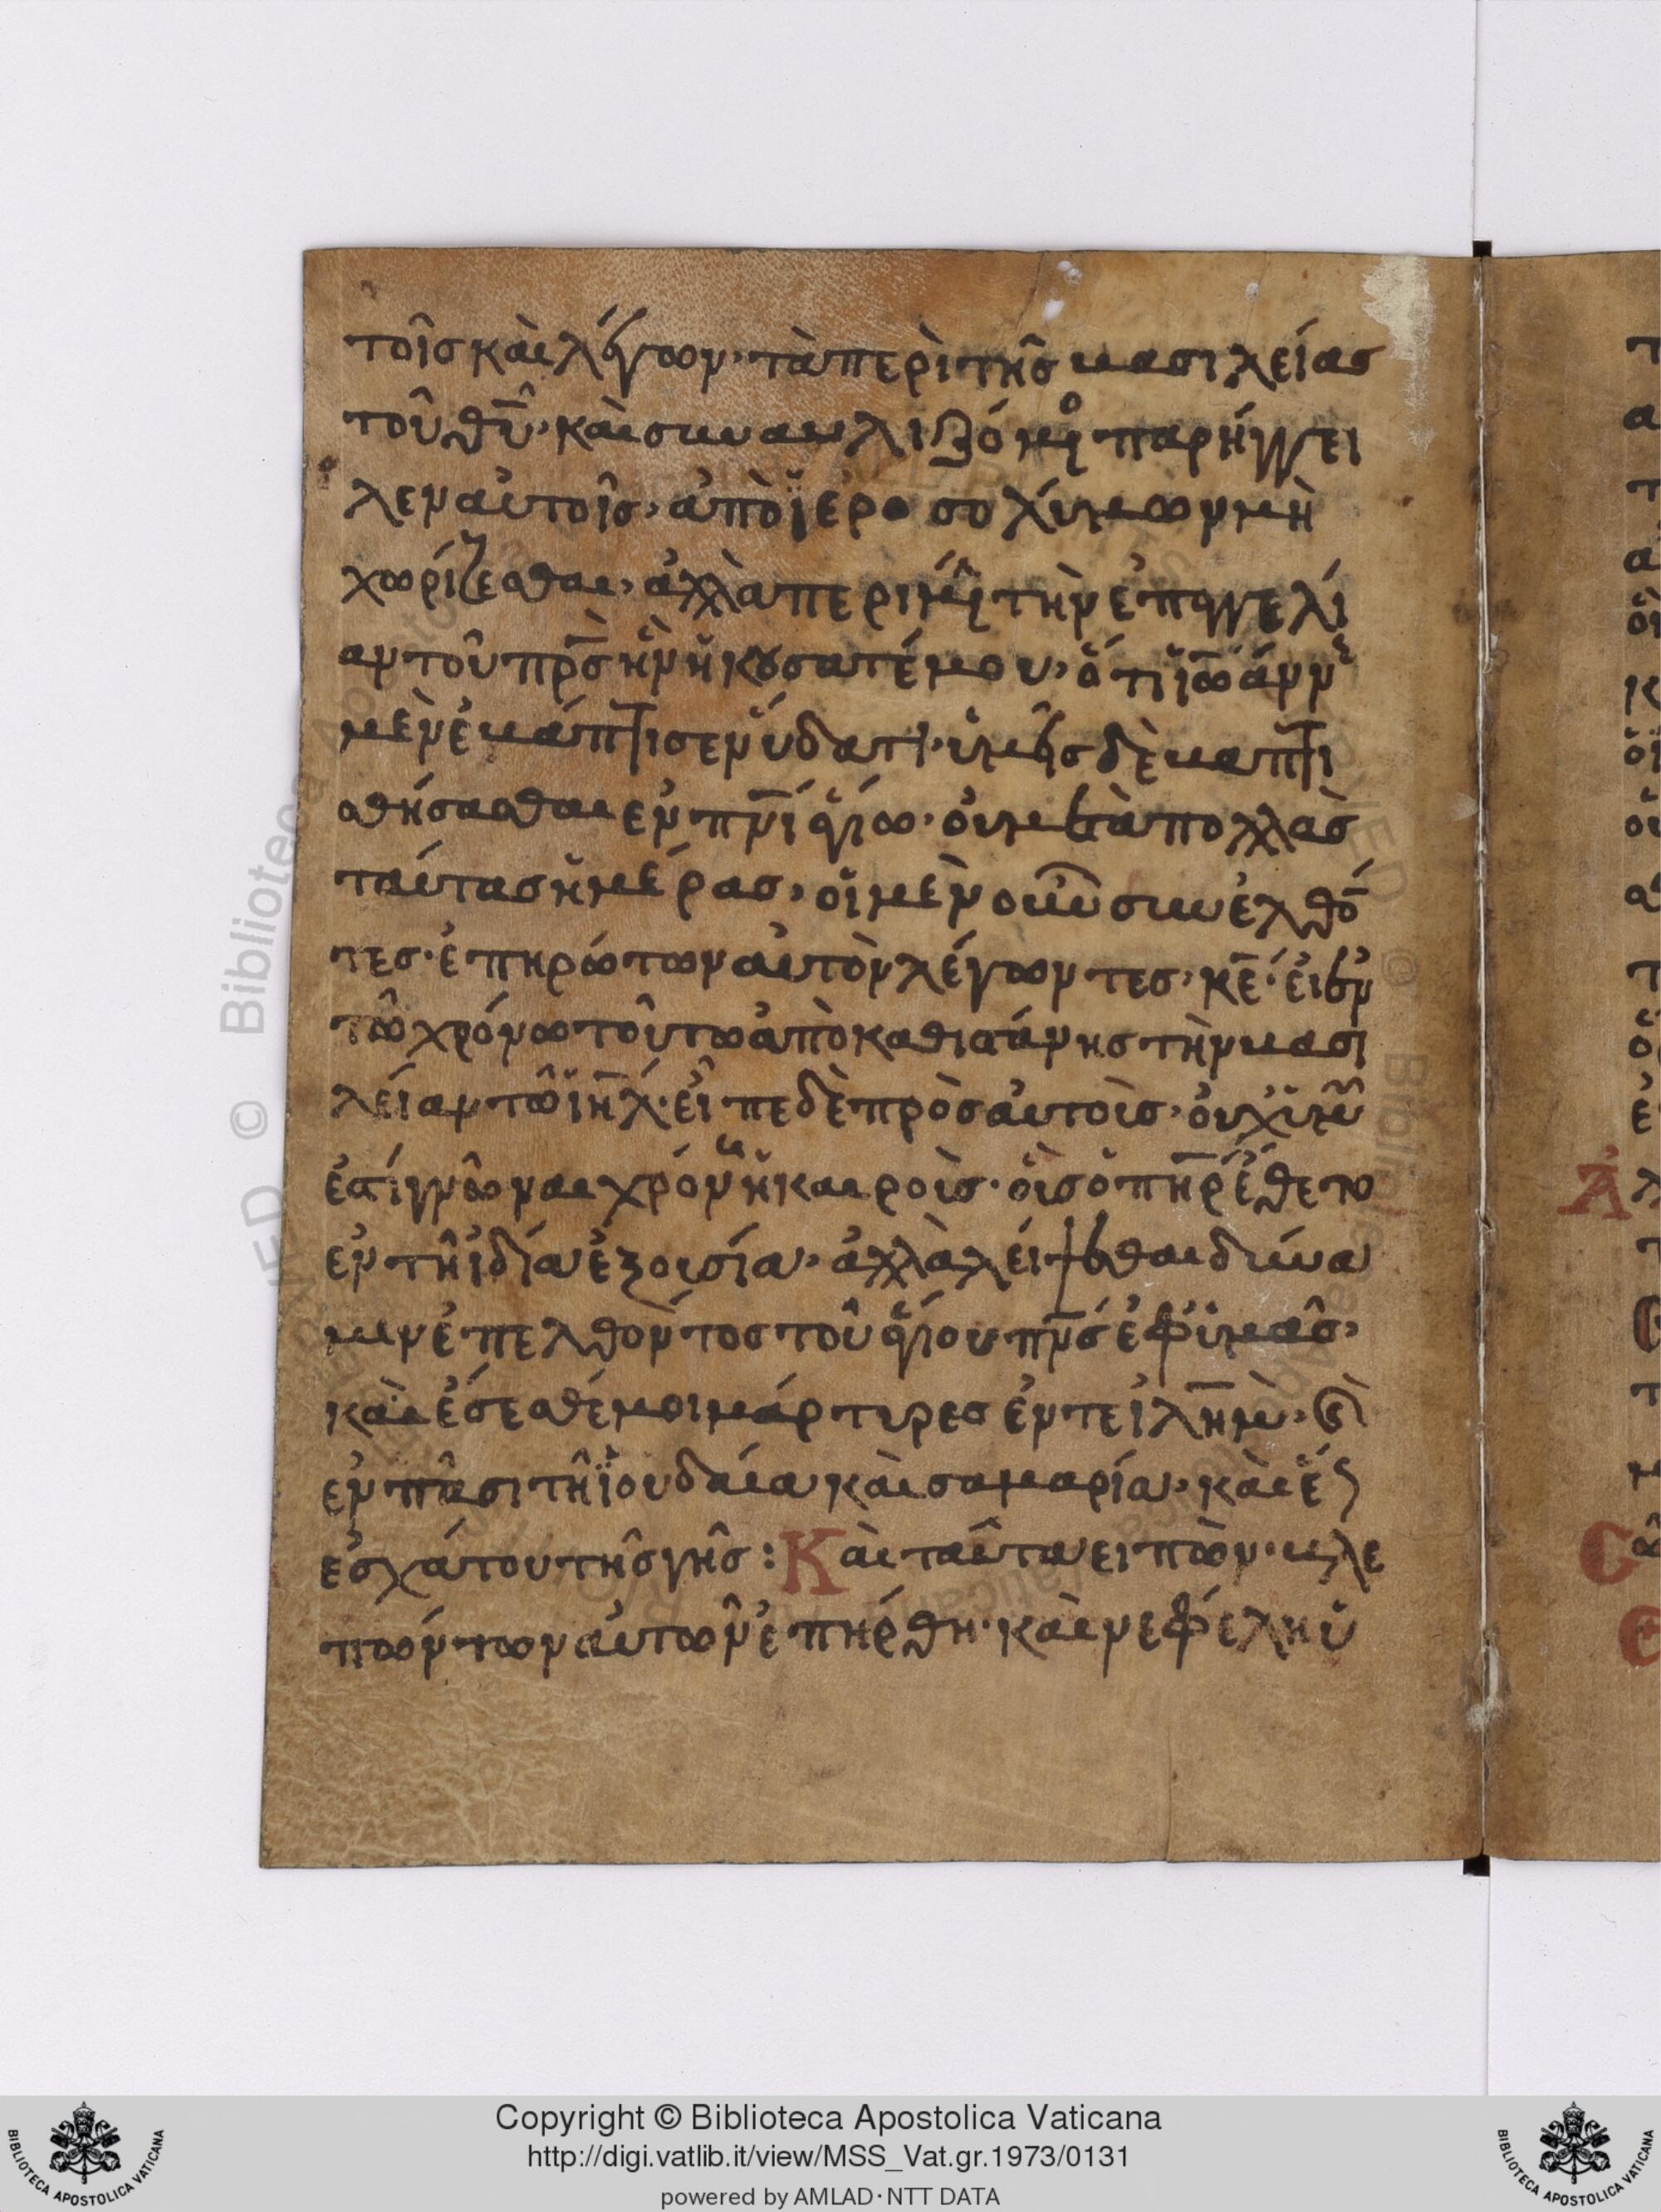 τοῖς καὶ λέγων· τὰ περὶ τῆς βασιλείας
τοῦ θῦ· καὶ συναυλιζόμεο παρήγγει
λεν αὐτοῖς· ἀπὸ ἱεροσολύμων μὴ
χωρίζεσθαι, ἀλλὰ περιμεῖ τὴν ἐπαγγελί
αν τοῦ πρς ἣν ἠκούσατέ μου· ὅτι ἰωάνν
μὲν ἐβάπτισεν ὕδατι· ὑμεῖς δὲ βαπτι
σθήσασθαι ἐν πνι ἁγίω· οὐ μετὰ πολλὰς
ταύτας ἡμέρας, οἱ μὲν οὖν συνελθό
τες· ἐπηρώτων αὐτὸν λέγωντες, κε· εἰ ἐν
τῶ χρόνω τούτω ἀπὸκαθιστάνης τὴν βασι
λείαν τῶ ιηλ· εἶπε δὲ πρὸς αὐτοὶς· οὐχ ὑμῶ
ἐστί γνῶναι χρόν ἢ καιροὶς· οἷς ὁ πηρ ἔθετο
ἐν τῆ ἰδία ἐξουσία· ἀλλὰ λείψεσθαι δύνα
μιν ἐπελθόντος τοῦ ἁγίου πνς ἐφ ὑμᾶς,
καὶ ἔσεσθέ μοι μάρτυρες ἔν τε ἰλημ· καὶ
ἐν πᾶσι τῆ ἰουδαία καὶ σαμαρία, καὶ ἕς
ἐσχάτου τῆς γῆς: Καὶ ταῦτα εἰπὼν· βλε
πώντων αὐτῶν ἐπήρθη· καὶ νεφέλη ὑ
Copyright © Biblioteca Apostolica Vaticana
http://digi.vatlib.it/view/MSS_Vat.gr.1973/0131
powered by AMLAD·NTT DATA
BIBLIOTECA APOSTOLICA VATICANA
BIBLIOTECA APOSTOLICA VATICANA